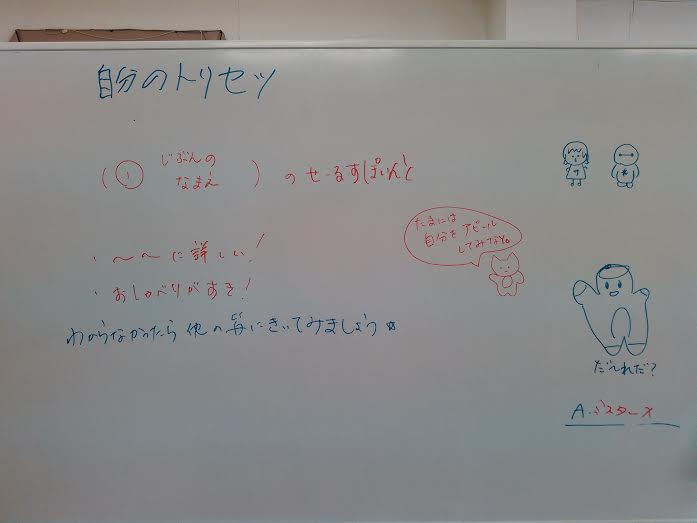 自分のトリセツ
( ① じぶんの
なまえ ) の せーるすぽいんと
たまには
自分を アピール
してみなよ。
・〜〜に詳しい!
・おしゃべりがすき!
わからなかったら 他の にきいてみましょう☆
サ
だ〜れだ?
A. ミスターX